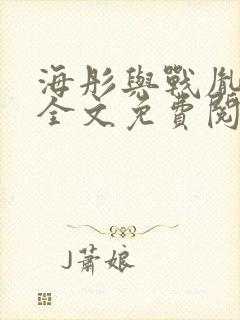 海彤與戰胤
全文免費閱
J蕭娘